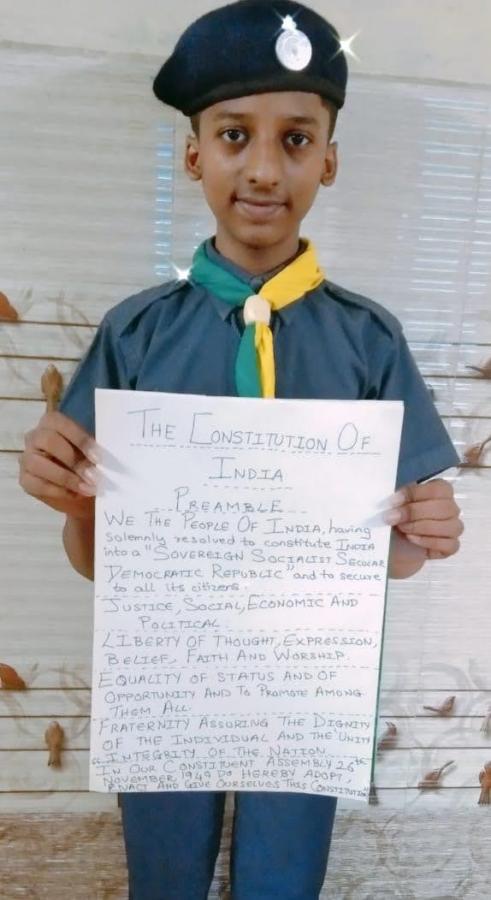 THE CONSTITUTION OF
INDIA
PREAMBLE
WE THE PEOPLE OF INDIA, having
solemnly resolved to constitute INDIA
into a "SOVEREIGN SOCIALIST SECULAR
DEMOCRATIC REPUBLIC" and to secure
to all its citizens.
JUSTICE, SOCIAL, ECONOMIC AND
POLITICAL.
LIBERTY OF THOUGHT, EXPRESSION,
BELIEF, FAITH AND WORSHIP.
EQUALITY OF STATUS AND OF
OPPORTUNITY AND TO PROMOTE AMONG
THEM ALL.
FRATERNITY ASSURING THE DIGNITY
OF THE INDIVIDUAL AND THE UNITY
INTEGRITY OF THE NATION.
"IN OUR CONSTITUENT ASSEMBLY 26th
NOVEMBER 1949 DO HEREBY ADOPT,
ENACT AND GIVE OURSELVES THIS CONSTITUTION"